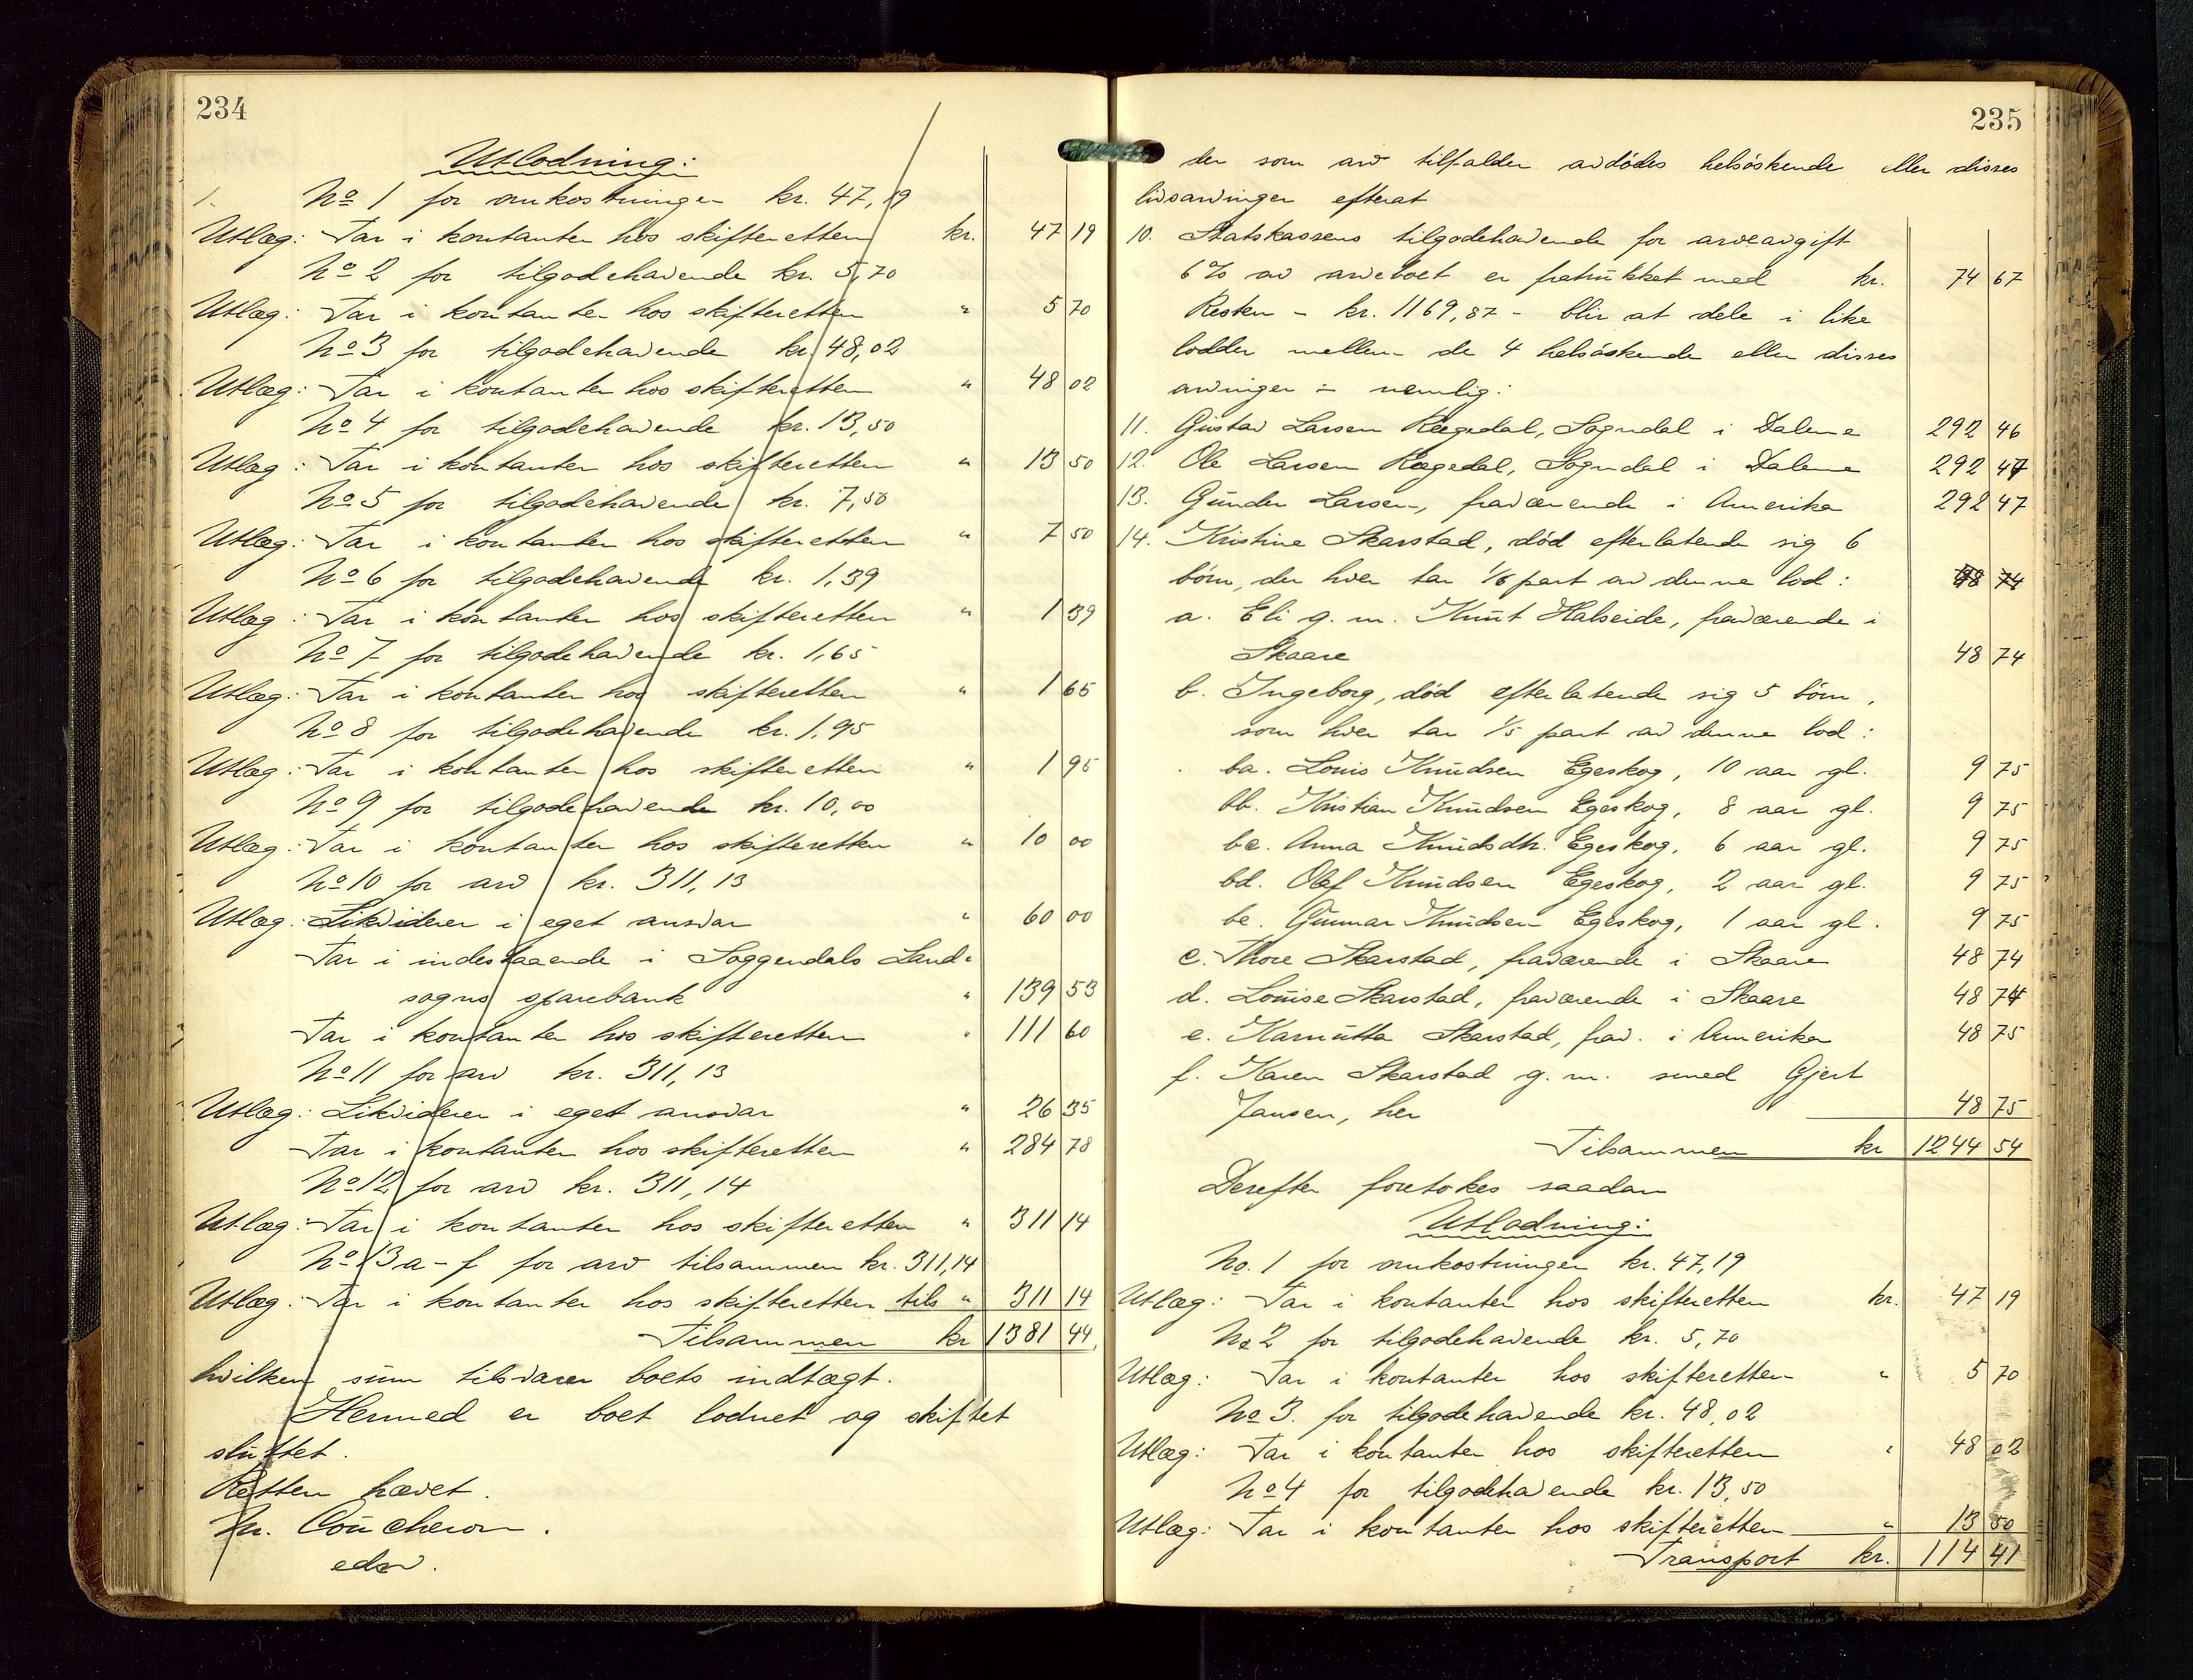 234
Utlodning:
1. No 1 for omkostninger kr. 47,19
Utlæg: Tar i kontanter hos skifteretten kr. 47 19
No 2 for tilgodehavende kr. 5,70
Utlæg: Tar i kontanter hos skifteretten " 5 70
No 3 for tilgodehavende kr. 48,02
Utlæg: Tar i kontanter hos skifteretten " 48 02
No 4 for tilgodehavende kr. 13,50
Utlæg: Tar i kontanter hos skifteretten " 13 50
No 5 for tilgodehavende kr. 7,50
Utlæg: Tar i kontanter hos skifteretten " 7 50
No 6 for tilgodehavende kr. 1,39
Utlæg: Tar i kontanter hos skifteretten " 1 39
No 7 for tilgodehavende kr. 1,65
Utlæg: Tar i kontanter hos skifteretten " 1 65
No 8 for tilgodehavende kr. 1,95
Utlæg: Tar i kontanter hos skifteretten " 1 95
No 9 for tilgodehavende kr. 10,00
Utlæg: Tar i kontanter hos skifteretten " 10 00
No 10 for arv kr. 311,13
Utlæg: Likviderer i eget ansvar " 60 00
Tar i indestaaende i Soggendals Land-
sogns sparebank " 139 53
Tar i kontanter hos skifteretten " 111 60
No 11 for arv kr. 311,13
Utlæg: Likviderer i eget ansvar " 26 35
Tar i kontanter hos skifteretten " 284 78
No 12 for arv kr. 311,14
Utlæg: Tar i kontanter hos skifteretten " 311 14
No 13 a-f for arv tilsammen kr. 311,14
Utlæg: Tar i kontanter hos skifteretten tils " 311 14
Tilsammen kr 1381 44
hvilken sum tilsvarer boets indtægt.
Hermed er boet lodnet og skiftet
sluttet.
Retten hævet.
Hr. Coucheron.
edsv.
235
der som arv tilfalder avdødes helsøskende eller disses
livsarvinger efterat
10. Statskassens tilgodehavende for arveavgift
6% av arveboet er fratrukket med kr. 74 67
Resten - kr. 1169,87 - blir at dele i like
lodder mellem de 4 helsøskende eller disses
arvinger - nemlig:
11. Gustav Larsen Rægedal, Sogndal i Dalene 292 46
12. Ole Larsen Rægedal, Sogndal i Dalene 292 47
13. Gunder Larsen, fraværende i Amerika 292 47
14. Kristine Skarstad, død efterlatende sig 6
børn, der hver tar 1/6 part av denne lod: 48 74
a. Eli g. m. Knut Halseide, fraværende i
Skaare 48 74
b. Ingeborg, død efterlatende sig 5 børn,
som hver tar 1/5 part av denne lod:
ba. Louis Knudsen Egeskog, 10 aar gl. 9 75
bb. Kristian Knudsen Egeskog, 8 aar gl. 9 75
bc. Anna Knudsdtr. Egeskog, 6 aar gl. 9 75
bd. Olaf Knudsen Egeskog, 2 aar gl. 9 75
be. Gunnar Knudsen Egeskog, 1 aar gl. 9 75
c. Thore Skarstad, fraværende i Skaare 48 74
d. Louise Skarstad, fraværende i Skaare 48 74
e. Skarstad, frav. i Amerika 48 75
f. Karen Skarstad g. m. smed Gjert
Jansen, her 48 75
Tilsammen kr 1244 54
Derefter foretokes saadan
Utlodning:
No. 1 for omkostninger kr. 47,19
Utlæg: Tar i kontanter hos skifteretten kr. 47 19
No 2 for tilgodehavende kr. 5,70
Utlæg: Tar i kontanter hos skifteretten " 5 70
No 3. for tilgodehavende kr. 48,02
Utlæg: Tar i kontanter hos skifteretten " 48 02
No 4 for tilgodehavende kr. 13,50
Utlæg: Tar i kontanter hos skifteretten " 13 50
Transport kr. 114 41